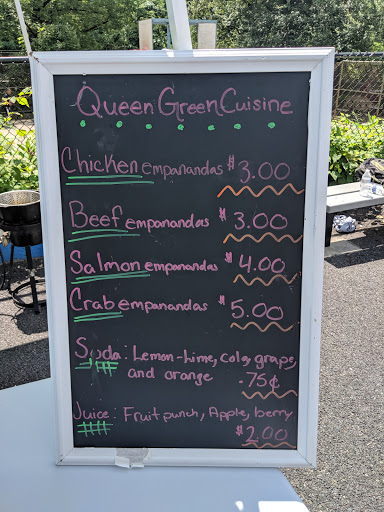 Queen Green Cuisine
Chicken empanandas $3.00
Beef empanandas $3.00
Salmon empanandas $4.00
Crab empanandas $5.00
Soda: Lemon-lime, cola, grape,
and orange -75¢
Juice: Fruit punch, Apple, berry
$2.00